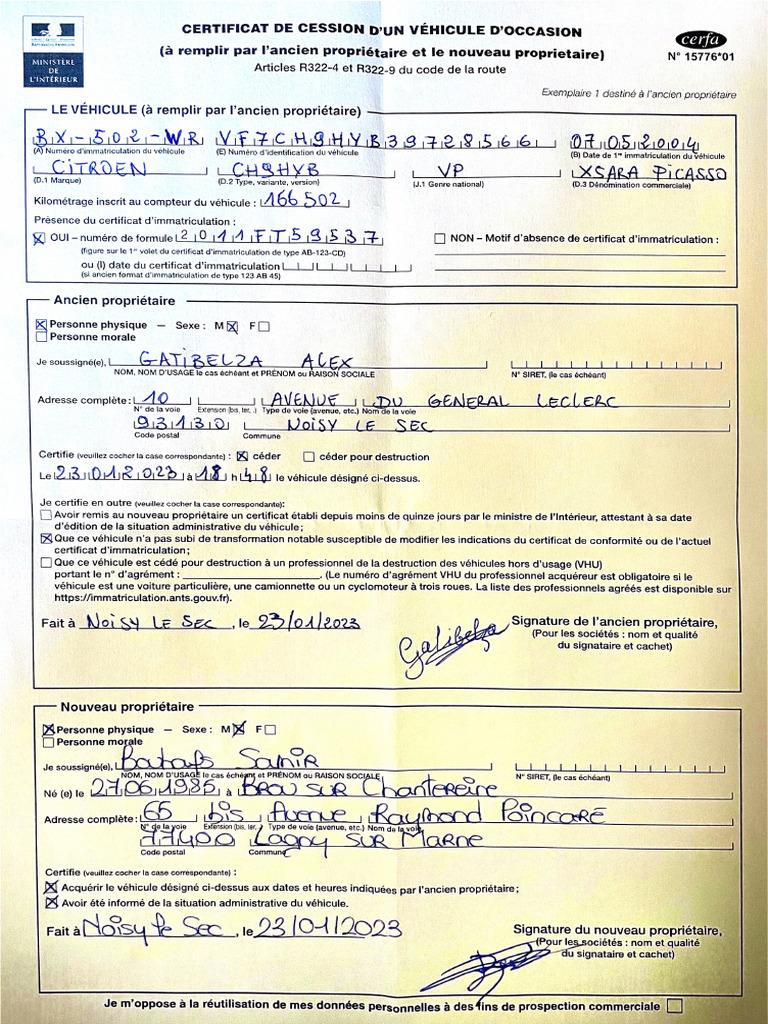 CERTIFICAT DE CESSION D'UN VÉHICULE D'OCCASION
(à remplir par l'ancien propriétaire et le nouveau proprietaire)
Articles R322-4 et R322-9 du code de la route
cerfa
N° 15776*01
MINISTÈRE
DE
L'INTÉRIEUR
Exemplaire 1 destiné à l'ancien propriétaire
LE VÉHICULE (à remplir par l'ancien propriétaire)
BX-502-WR VF7CH9HYB39728566 07052004
(A) Numéro d'immatriculation du véhicule (E) Numéro d'identification du véhicule (B) Date de 1re immatriculation du véhicule
CITROEN CH9HYB VP XSARA PICASSO
(D.1 Marque) (D.2 Type, variante, version) (J.1 Genre national) (D.3 Dénomination commerciale)
Kilométrage inscrit au compteur du véhicule : 166 502
Présence du certificat d'immatriculation :
OUI – numéro de formule 2011FT59537 NON – Motif d'absence de certificat d'immatriculation :
(figure sur le 1er volet du certificat d'immatriculation de type AB-123-CD)
ou (I) date du certificat d'immatriculation
(si ancien format d'immatriculation de type 123 AB 45)
Ancien propriétaire
Personne physique – Sexe : M F
Personne morale
Je soussigné(e), GATIBELZA ALEX
NOM, NOM D'USAGE le cas échéant et PRÉNOM ou RAISON SOCIALE N° SIRET, (le cas échéant)
Adresse complète : 10 AVENUE DU GENERAL LECLERC
N° de la voie Extension (bis, ter, .) Type de voie (avenue, etc.) Nom de la voie
93130 NOISY LE SEC
Code postal Commune
Certifie (veuillez cocher la case correspondante) : céder céder pour destruction
Le 23012023 à 18 h 48 le véhicule désigné ci-dessus.
Je certifie en outre (veuillez cocher la case correspondante):
Avoir remis au nouveau propriétaire un certificat établi depuis moins de quinze jours par le ministre de l'Intérieur, attestant à sa date
d'édition de la situation administrative du véhicule ;
Que ce véhicule n'a pas subi de transformation notable susceptible de modifier les indications du certificat de conformité ou de l'actuel
certificat d'immatriculation;
Que ce véhicule est cédé pour destruction à un professionnel de la destruction des véhicules hors d'usage (VHU)
portant le n° d'agrément : . (Le numéro d'agrément VHU du professionnel acquéreur est obligatoire si le
véhicule est une voiture particulière, une camionnette ou un cyclomoteur à trois roues. La liste des professionnels agréés est disponible sur
https://immatriculation.ants.gouv.fr).
Fait à NOISY LE SEC , le 23/01/2023
Signature de l'ancien propriétaire,
(Pour les sociétés : nom et qualité
du signataire et cachet)
Gatibelza
Nouveau propriétaire
Personne physique – Sexe : M F
Personne morale
Je soussigné(e), Samir
NOM, NOM D'USAGE le cas échéant et PRÉNOM ou RAISON SOCIALE N° SIRET, (le cas échéant)
Né (e) le 27061985 à BROU SUR Chantereine
Adresse complète : 65 bis Avenue Raymond Poincaré
N° de la voie Extension (bis, ter, .) Type de voie (avenue, etc.) Nom de la voie
77400 Lagny SUR Marne
Code postal Commune
Certifie (veuillez cocher la case correspondante) :
Acquérir le véhicule désigné ci-dessus aux dates et heures indiquées par l'ancien propriétaire ;
Avoir été informé de la situation administrative du véhicule.
Fait à Noisy le Sec , le 23/01/2023
Signature du nouveau propriétaire,
(Pour les sociétés : nom et qualité
du signataire et cachet)
Je m'oppose à la réutilisation de mes données personnelles à des fins de prospection commerciale